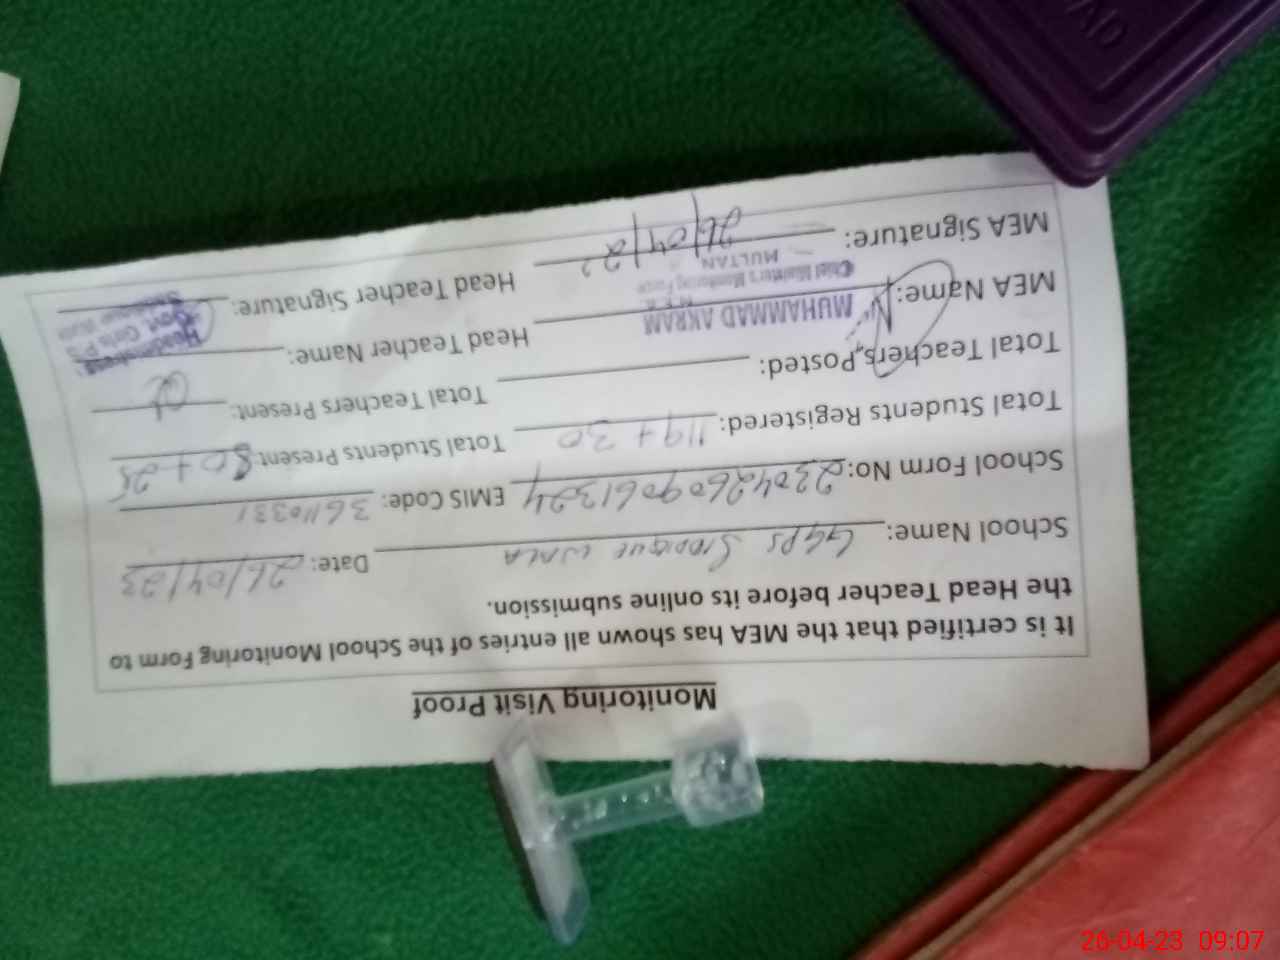 Monitoring Visit Proof
It is certified that the MEA has shown all entries of the School Monitoring Form to
the Head Teacher before its online submission.
School Name: GGPS SIDDIQUE WALA Date: 26/04/23
School Form No: 23042609061324 EMIS Code: 36110331
Total Students Registered: 119+30 Total Students Present: 80+25
Total Teachers Posted: Total Teachers Present:
MEA Name: MUHAMMAD AKRAM Head Teacher Name:
Chief Minister's Monitoring Force
MULTAN
Headmistress
Govt. Girls P/S
MEA Signature: 26/04/2 Head Teacher Signature:
26-04-23 09:07